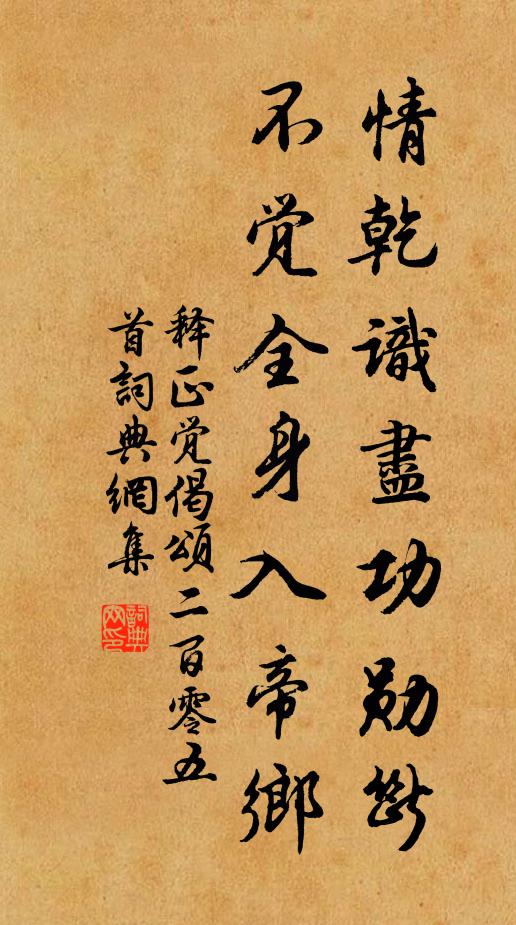 情乾識盡功勋断
不覚全身入帝鄉
释正覚偈頌二百零五
首詞典網集
詞典网印